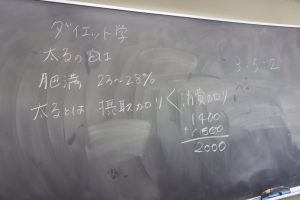 ダイエット学
太るの宮は
肥満 23~28%
太るとは 摂取カロリ〈消費カロリ
1400
+600
2000
3:5:2